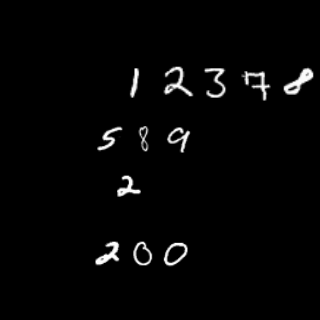 1 2 3 7 8
5 8 9
2
2 0 0